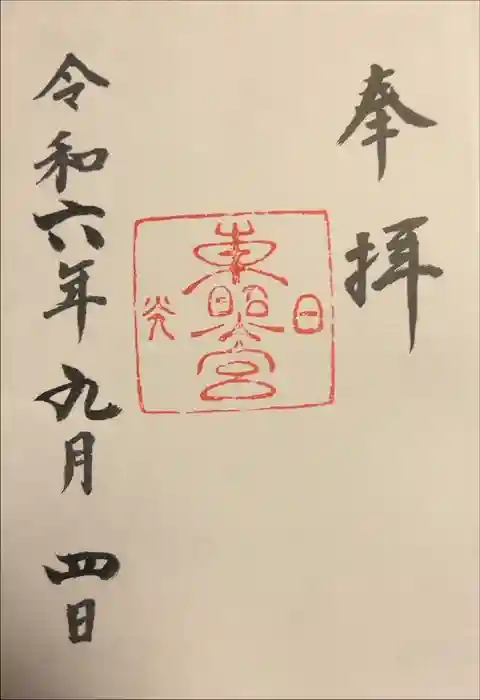 奉拝
日光
東照宮
令和六年九月四日